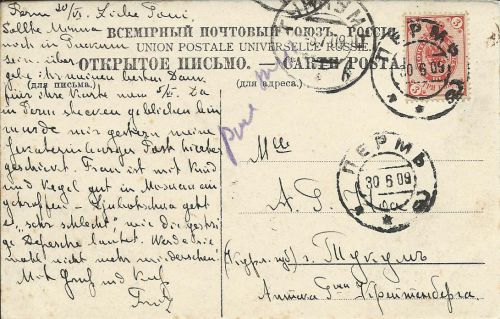 Perm 30/VI. Liebe Toni.
Sollte Minna
noch in Tuckum
sein über
gebe ihr meinen besten Dank
für ihre Karte vom 5/VI. Da
in Perm geblieben bin
wurde mir gestern meine
Post hierher
geschickt. Frau ist mit Kind
und Kegel gut in Moskau ein
getroffen - geht
es „sehr schlecht" wie die gestrige
Depesche lautet. Werde sie
wohl nicht mehr wiedersehen!
Mit Gruß und Kuß
Fritz
ВСЕМІРНЫЙ ПОЧТОВЫЙ СОЮЗЪ. РОССІЯ
UNION POSTALE UNIVERSELLE. RUSSIE.
ОТКРЫТОЕ ПИСЬМО. — CARTE POSTALE
(для письма.)
(для адреса.)
ТУККУМ
ПЕРМЬ
30 6 09
ПЕРМЬ
30 6 09
Mlle
A.
(Курл. губ) г. Туккумъ
Аптека Крейтенберга.